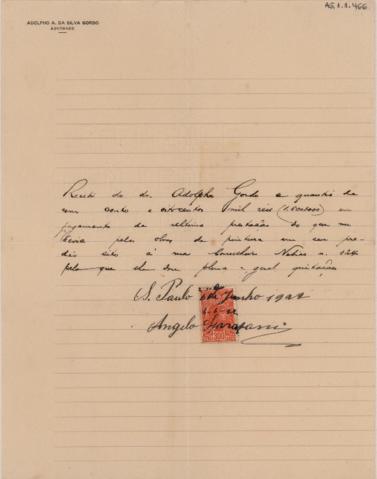 ADOLPHO A. DA SILVA GORDO
ADVOGADO
AG.1.1.466
Recebi do dr. Adolpho Gordo a quantia de
um conto e oitocentos mil réis em
pagamento da ultima prestação do que me
devia pelas obras de pintura em seu pre-
dio sito á rua Conselheiro Nebias n.
pelo que lhe dou plena e geral quitação
S. Paulo de Junho 1922
Angelo